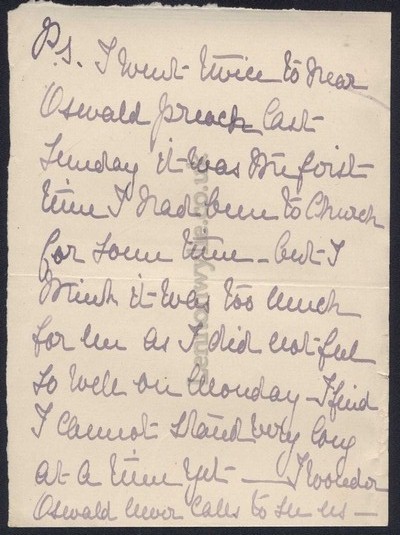 P.S. I went twice to hear
Oswald preach last
Sunday it was the first
time I had been to Church
for some time - but I
think it was too much
for me as I did not feel
so well on Monday - I find
I cannot stand very long
at a time yet — I wonder
Oswald never calls to see us —
bennonwycle.co.uk